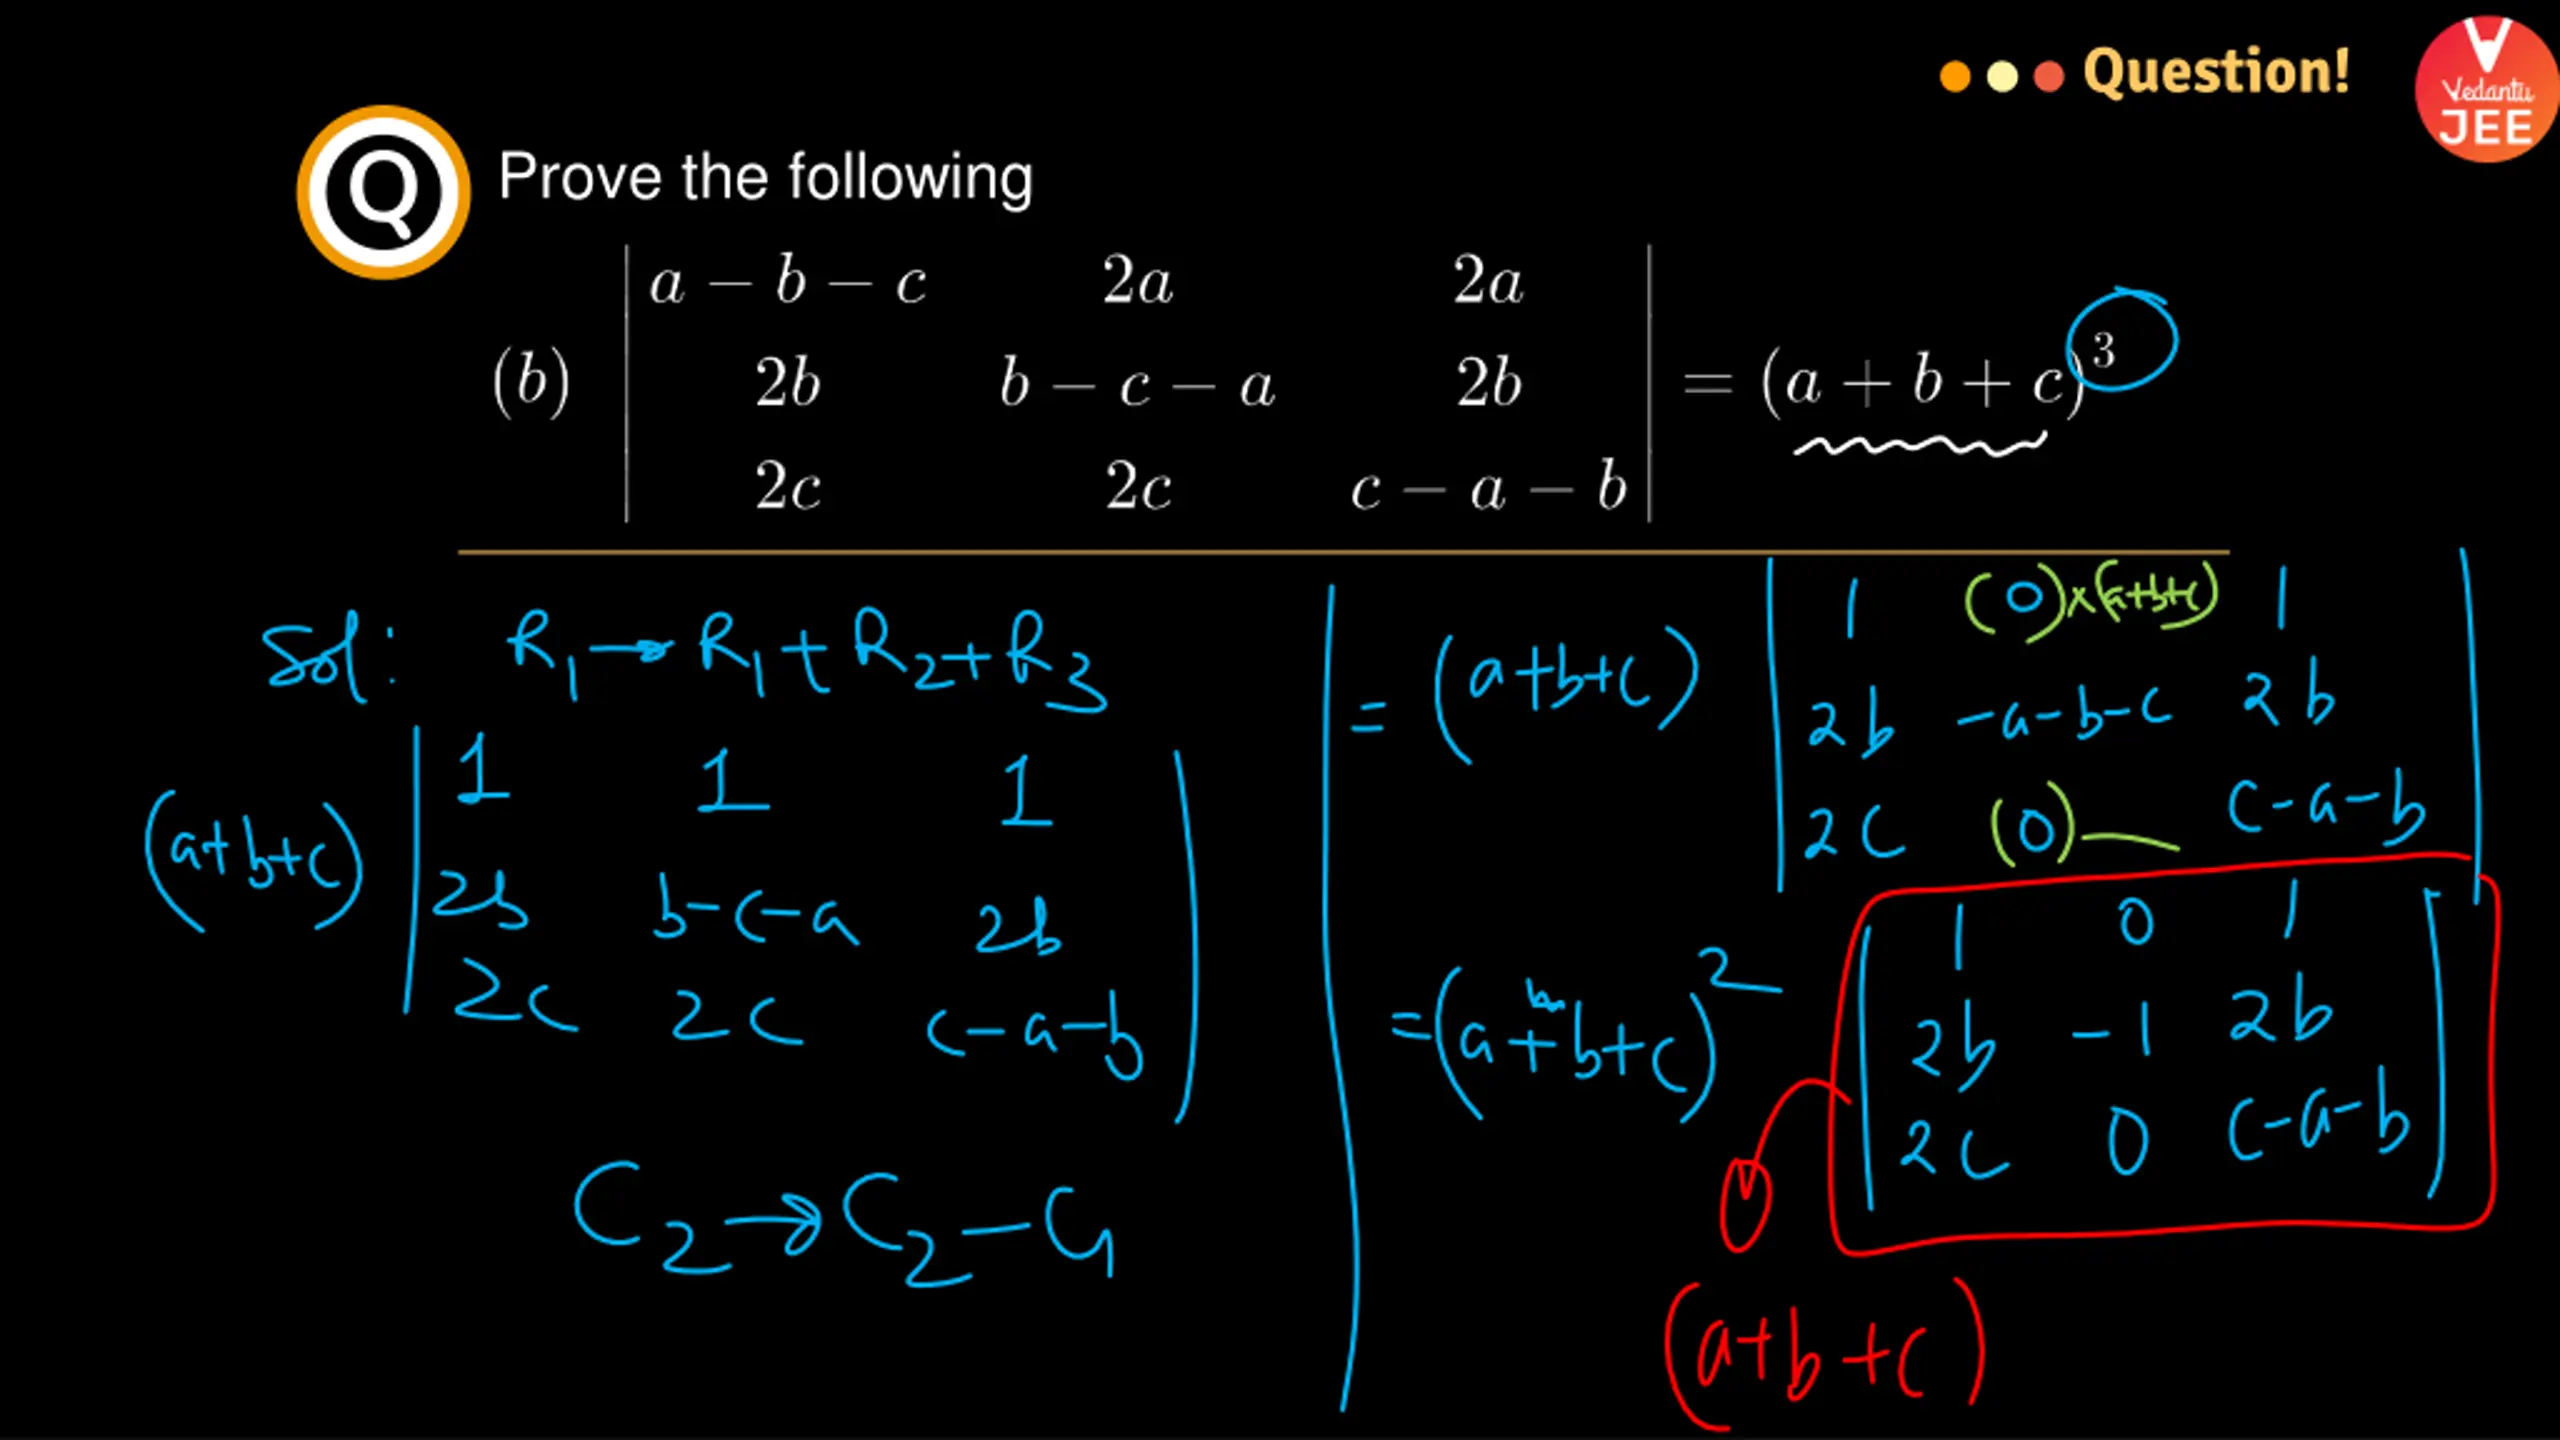 Question!
Vedantu
JEE
Q Prove the following
(b) | a − b − c 2a 2a |
| 2b b − c − a 2b | = (a + b + c)³
| 2c 2c c − a − b |
Sol: R₁ → R₁ + R₂ + R₃
(a+b+c) | 1 1 1 |
| 2b b-c-a 2b |
| 2c 2c c-a-b |
C₂ → C₂ - C₁
= (a+b+c) | 1 (0)×(a+b+c) 1 |
| 2b -a-b-c 2b |
| 2c (0) c-a-b |
= (a+b+c)² | 1 0 1 |
| 2b -1 2b |
| 2c 0 c-a-b |
(a+b+c)